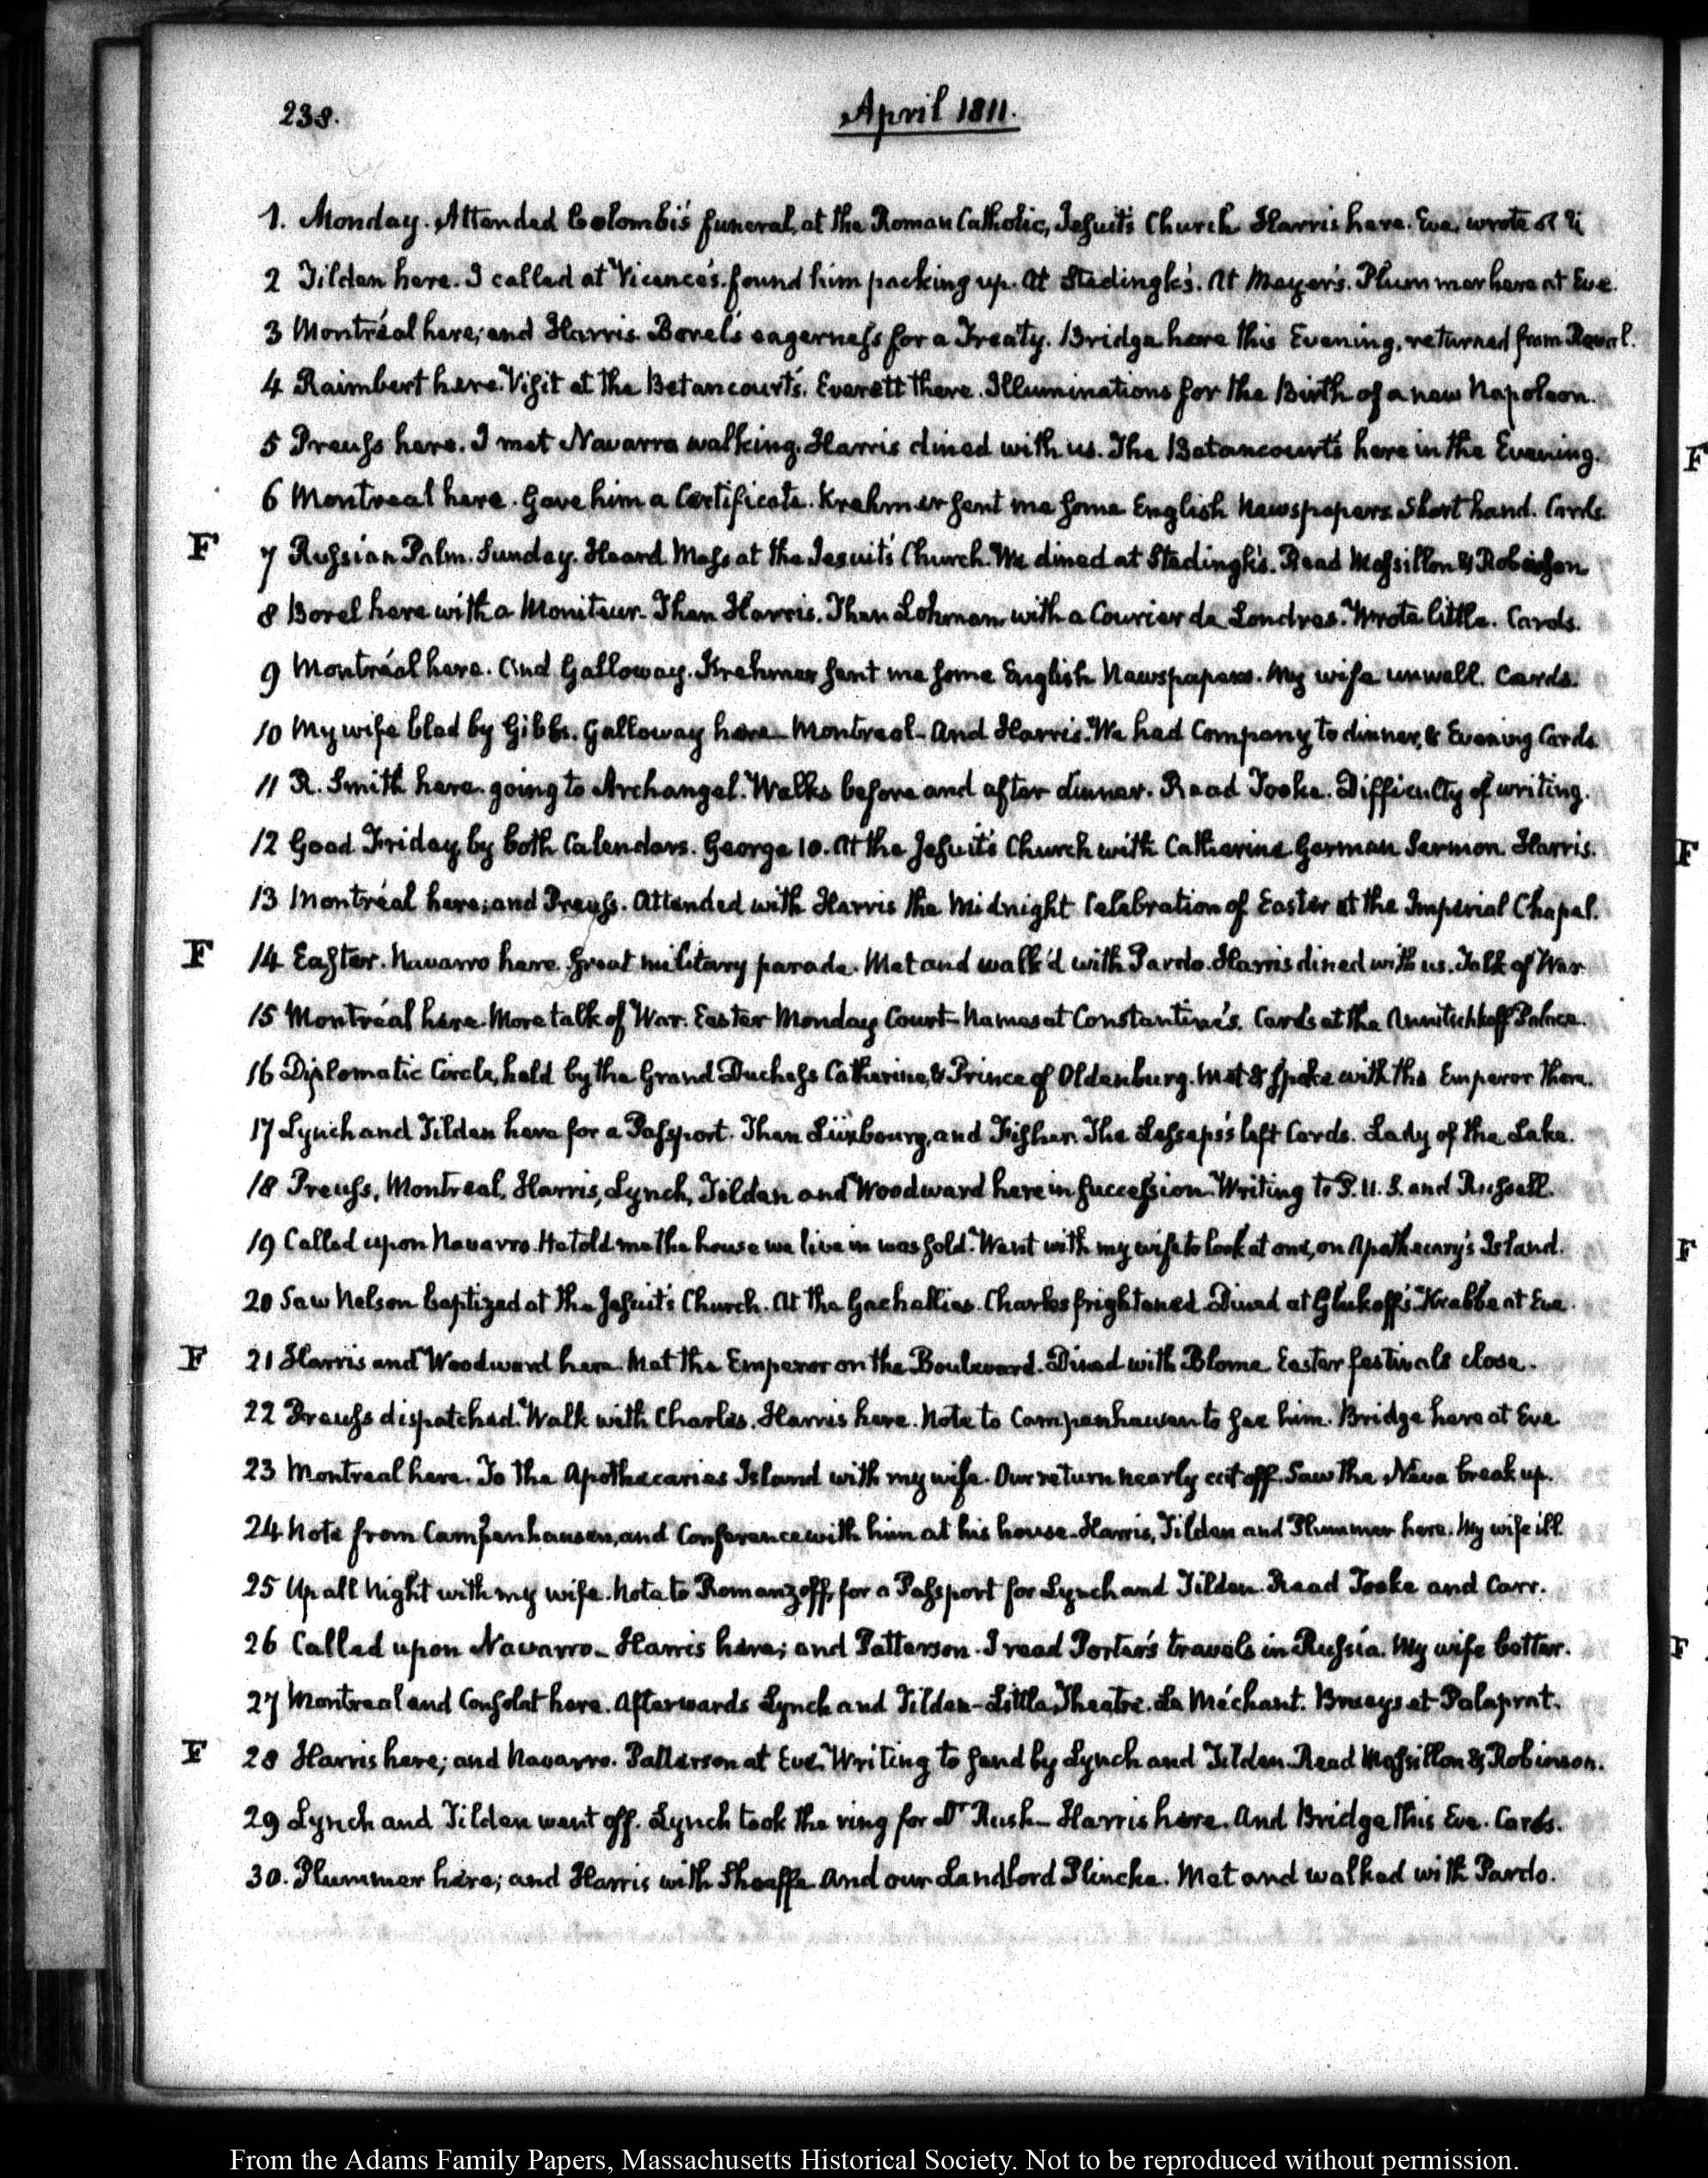 238.
April 1811.
1. Monday. Attended Colombi's funeral, at the Roman Catholic, Jesuits Church Harris here. Eve, wrote
2 Tilden here. I called at Vicence's. found him packing up. At Stedingk's. At Meyer's. Plummer here at Eve.
3 Montréal here; and Harris. Borel's eagerness for a Treaty. Bridge here this Evening, returned from Reval.
4 Raimbert here. Visit at the Betancourt's. Everett there. Illuminations for the Birth of a new Napoleon.
5 Preuss here. I met Navarro walking. Harris dined with us. The Betancourt's here in the Evening.
F
6 Montreal here. Gave him a Certificate. Krehmer sent me some English Newspapers. Short hand. Cards.
F 7 Russian Palm. Sunday. Heard Mass at the Jesuits Church. We dined at Stedingk's. Read Massillon & Robinson
8 Borel here with a Moniteur. Then Harris. Then Lohman with a Courier de Londres. Wrote little. Cards.
9 Montréal here. And Galloway. Krehmer sent me some English Newspapers. My wife unwell. Cards.
10 My wife bled by Gibbs. Galloway here – Montreal – And Harris. We had Company to dinner, & Evening Cards
11 R. Smith here going to Archangel. Walks before and after dinner. Read Tooke. Difficulty of writing.
12 Good Friday by both Calendars. George 10. At the Jesuits Church with Catherine German Sermon. Harris.
F
13 Montréal here; and Preuss. Attended with Harris the Midnight Celebration of Easter at the Imperial Chapel.
F 14 Easter. Navarro here. Great military parade. Met and walk'd with Pardo. Harris dined with us. Talk of War.
15 Montréal here. More talk of War. Easter Monday Court – Names at Constantine's. Cards at the Annitschkoff Palace.
16 Diplomatic Circle, held by the Grand Duchess Catherine, & Prince of Oldenburg. Met & spoke with the Emperor there.
17 Lynch and Tilden here for a Passport. Then Lüxbourg, and Fisher. The Lesseps's left Cards. Lady of the Lake.
18 Preuss, Montreal, Harris, Lynch, Tilden and Woodward here in succession. Writing to P. U. S. and Russell.
19 Called upon Navarro. He told me the house we live in was sold. Went with my wife to look at one, on Apothecary's Island.
F
20 Saw Nelson baptized at the Jesuit's Church. At the Gachallies. Charles frightened. Dined at Glukoff's. Krabbe at Eve.
F 21 Harris and Woodward here. Met the Emperor on the Boulevard. Dined with Blome. Easter festivals close.
22 Preuss dispatched. Walk with Charles. Harris here. Note to Campenhausen to see him. Bridge here at Eve
23 Montreal here. To the Apothecaries Island with my wife. Our return nearly cut off. Saw the Neva break up.
24 Note from Campenhausen, and Conference with him at his house. Harris, Tilden and Plummer here. My wife ill.
25 Up all Night with my wife. Note to Romanzoff, for a Passport for Lynch and Tilden. Read Tooke and Carr.
26 Called upon Navarro – Harris here; and Patterson. I read Porter's travels in Russia. My wife better.
F
27 Montreal and Consolat here. Afterwards Lynch and Tilden – Little Theatre. Le Méchant. Brueys et Palaprat.
F 28 Harris here; and Navarro. Patterson at Eve. Writing to send by Lynch and Tilden. Read Massillon & Robinson.
29 Lynch and Tilden went off. Lynch took the ring for Dr Rush – Harris here. And Bridge this Eve. Cards.
30. Plummer here; and Harris with Sheaffe. And our Landlord Plincke. Met and walked with Pardo.
From the Adams Family Papers, Massachusetts Historical Society. Not to be reproduced without permission.